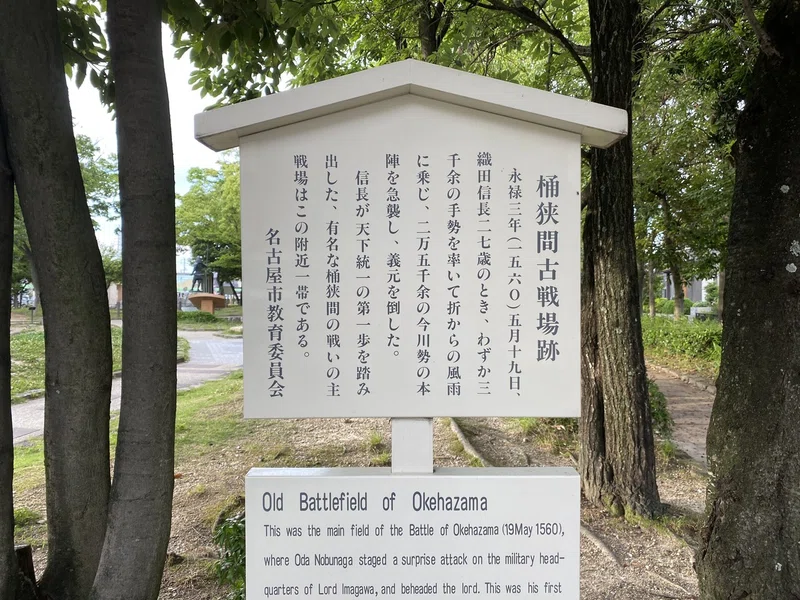 桶狭間古戦場跡
永禄三年（一五六〇）五月十九日、
織田信長二七歳のとき、わずか三
千余の手勢を率いて折からの風雨
に乗じ、二万五千余の今川勢の本
陣を急襲し、義元を倒した。
信長が天下統一の第一歩を踏み
出した、有名な桶狭間の戦いの主
戦場はこの附近一帯である。
名古屋市教育委員会
Old Battlefield of Okehazama
This was the main field of the Battle of Okehazama (19May 1560),
where Oda Nobunaga staged a surprise attack on the military head-
quarters of Lord Imagawa, and beheaded the lord. This was his first